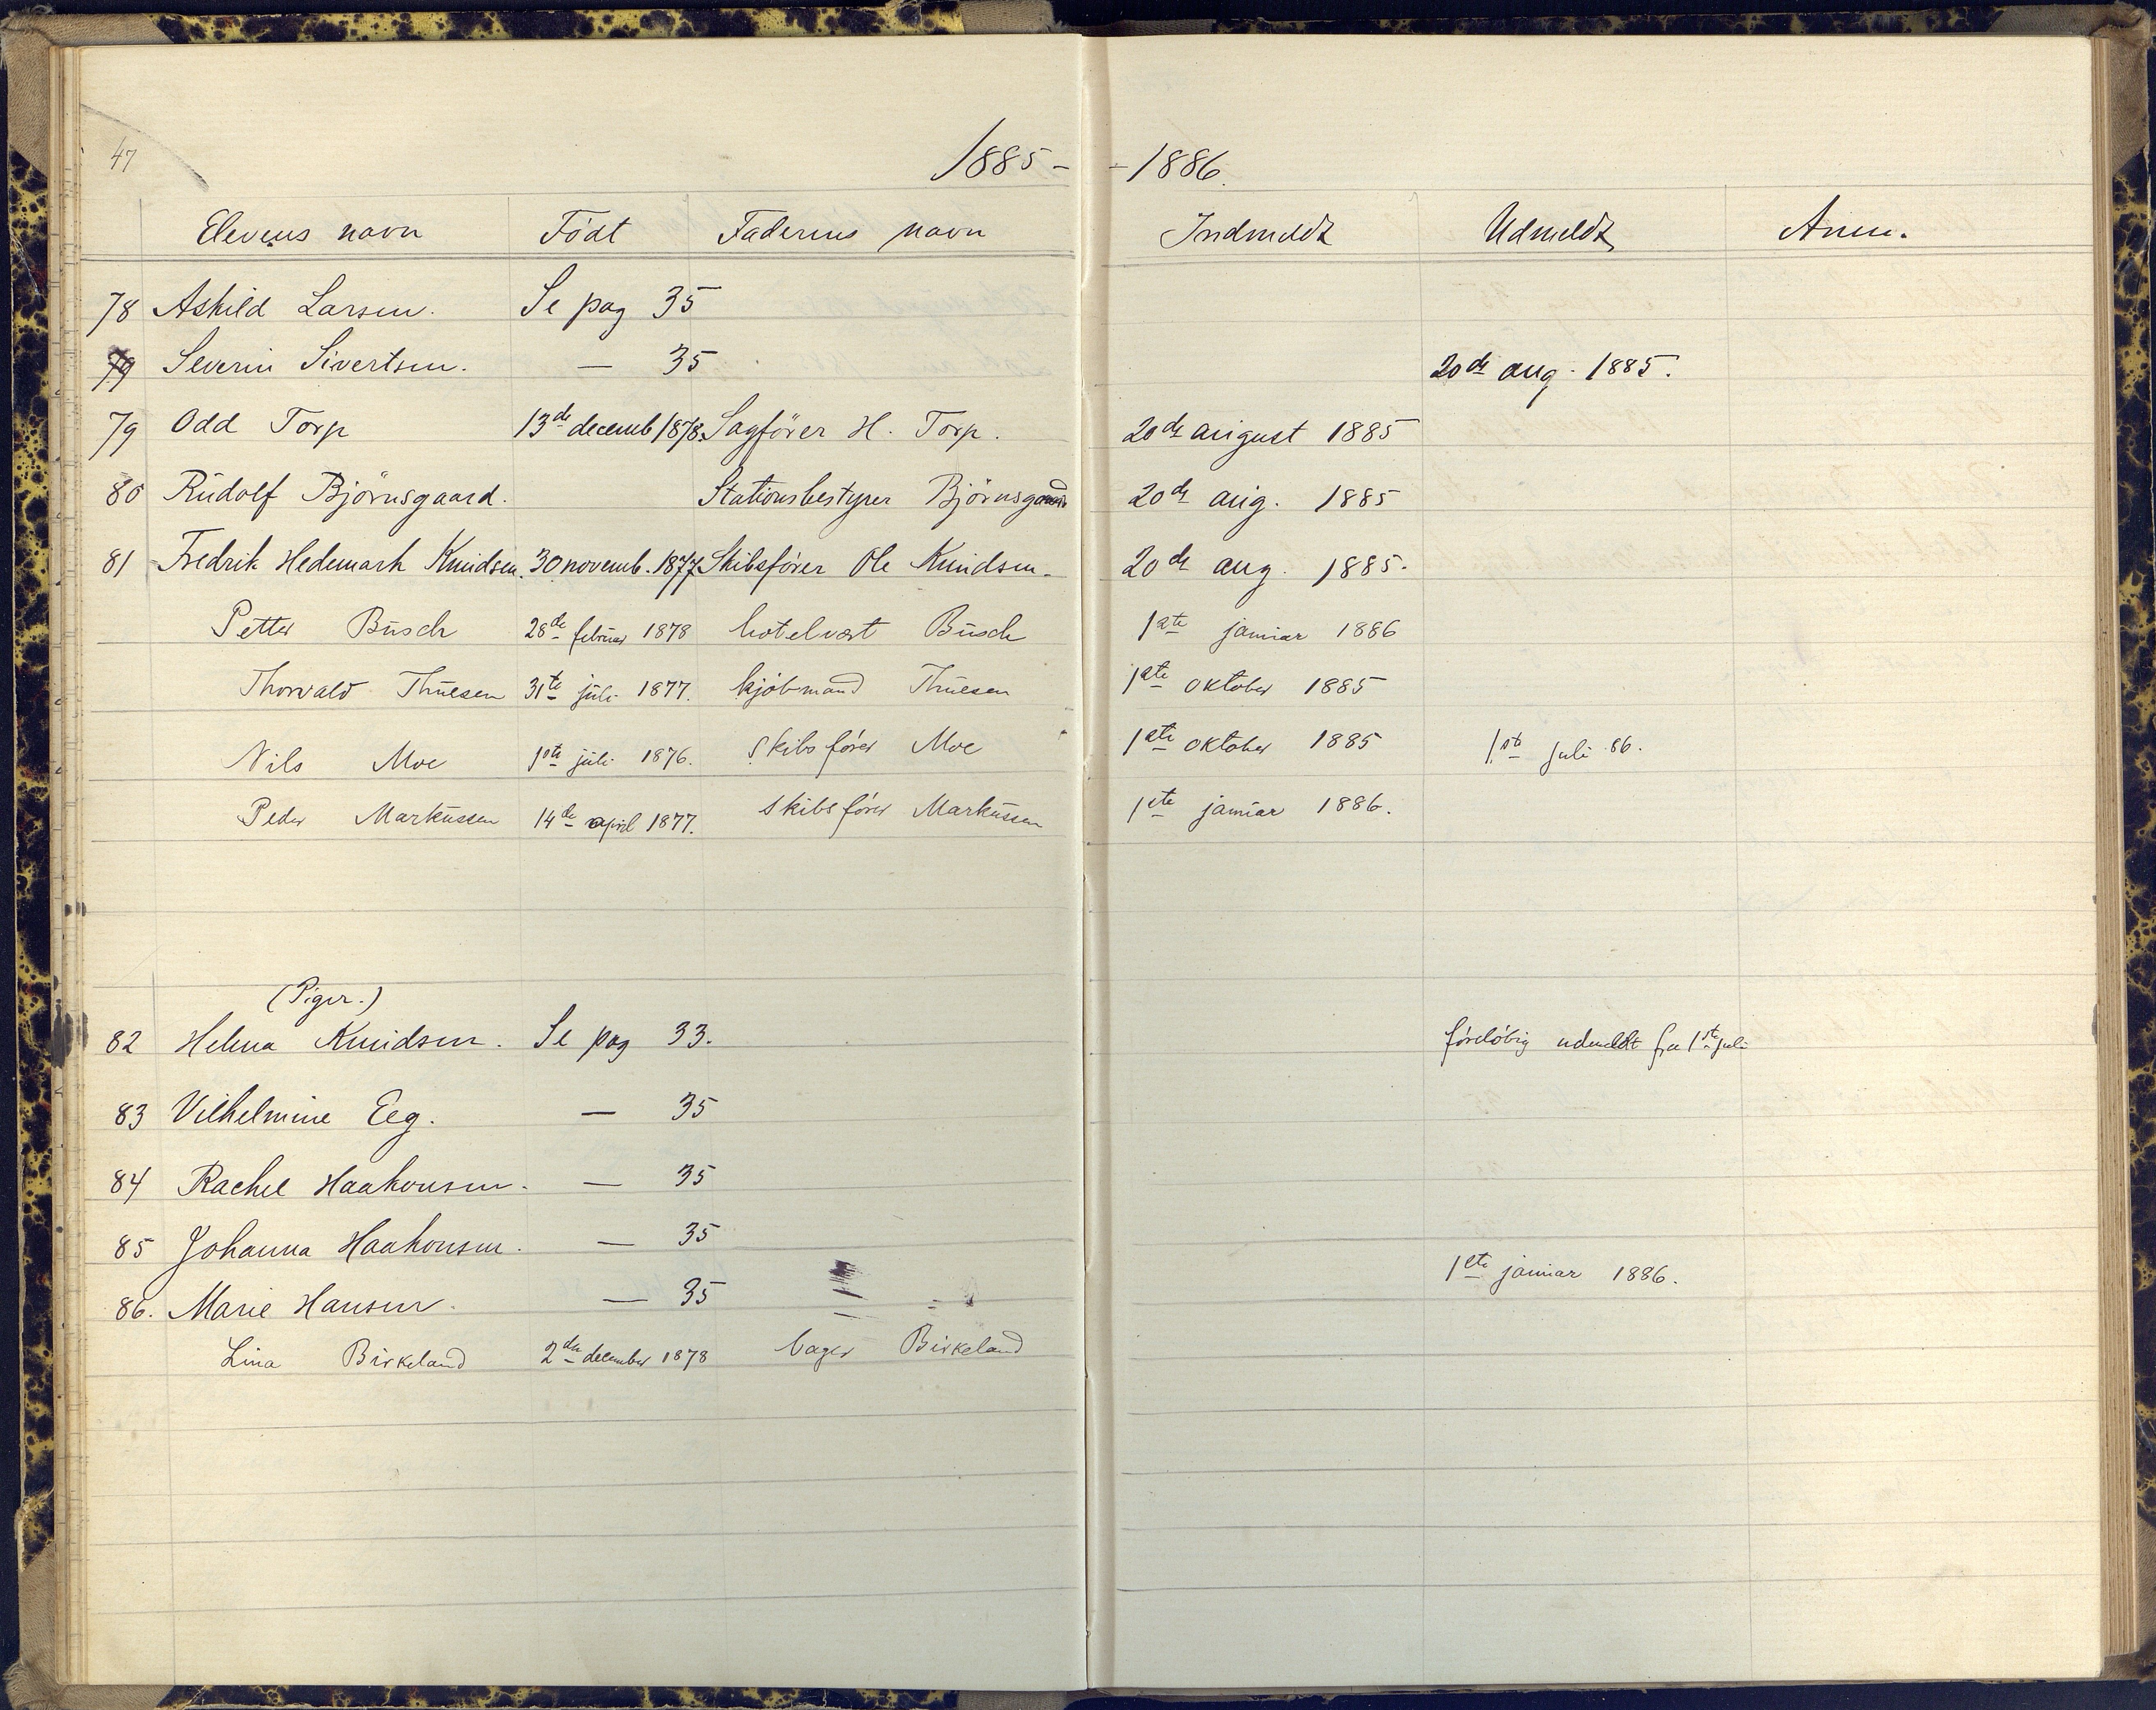 47
1885 - - 1886.
Elevens navn Födt Faderens navn Indmeldt Udmeldt Anm.
78 Askild Larsen. Se pag 35
79 Severin Sivertsen. — 35 20de aug. 1885.
79 Odd Torp 13de decemb 1878. Sagförer H. Torp. 20de august 1885
80 Rudolf Björnsgaard. Stationsbestyrer Björnsgaard 20de aug. 1885
81 Fredrik Hedemark Knudsen. 30 novemb. 1877 Skibsförer Ole Knudsen. 20de aug. 1885.
Petter Busch 28de februar 1878 hotelvært Busch 1ste januar 1886
Thorvald Thuesen 31te juli 1877. kjöbmand Thuesen 1ste oktober 1885
Nils Moe 1ste juli 1876. skibsförer Moe 1ste oktober 1885 1ste juli 86.
Peder Markussen 14de april 1877. skibsförer Markussen 1ste januar 1886.
(Piger.)
82 Helena Knudsen. Se pag 33. foreløbig udmeldt fra 1ste juli
83 Vilhelmine Eeg. — 35
84 Rachel Haakonsen. — 35
85 Johanna Haakonsen. — 35
86. Marie Hansen. — 35 1ste januar 1886.
Lina Birkeland 2den december 1878 bager Birkeland